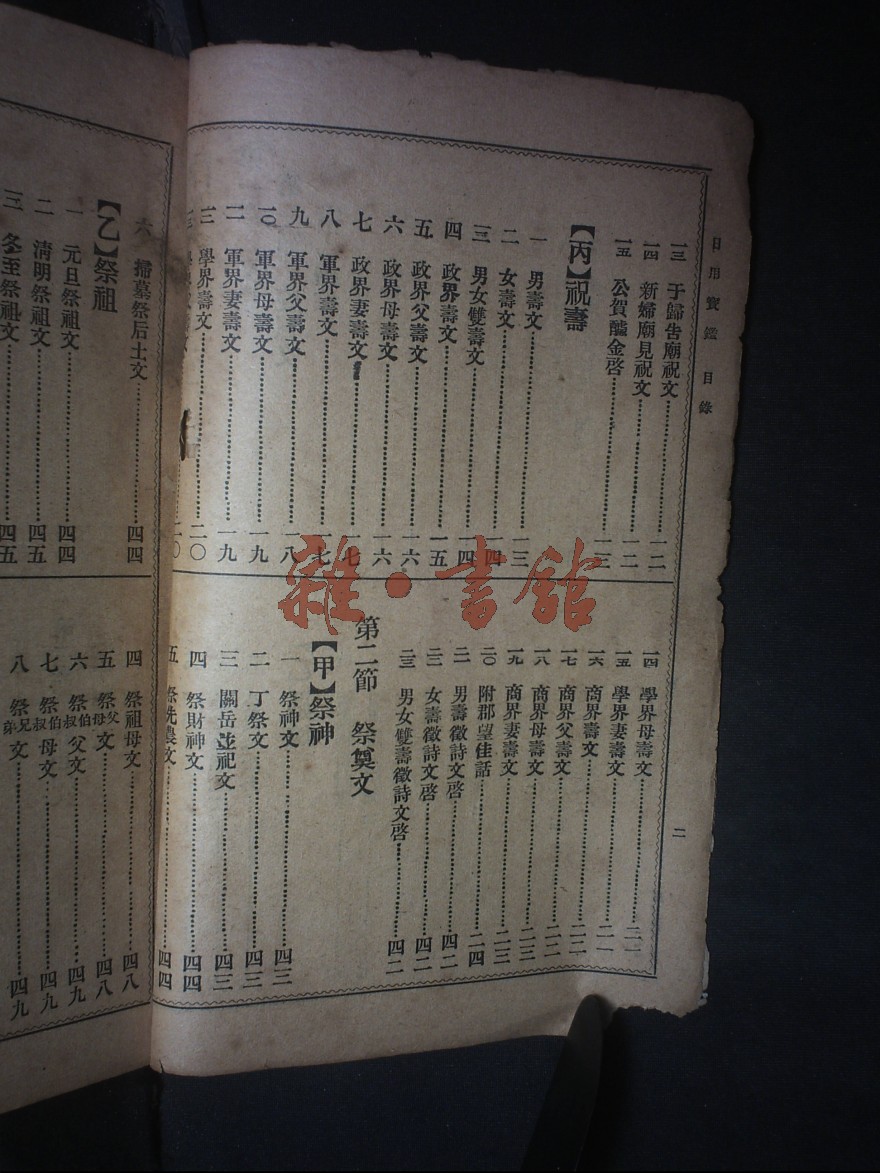 日用寶鑑 目錄
二
一三 于歸告廟祝文 一二
一四 新婦廟見祝文 一二
一五 公賀醵金啓 一三
【丙】祝壽
一 男壽文 一三
二 女壽文 一四
三 男女雙壽文 一四
四 政界壽文 一五
五 政界父壽文 一六
六 政界母壽文 一六
七 政界妻壽文 一七
八 軍界壽文 一七
九 軍界父壽文 一八
一〇 軍界母壽文 一九
一一 軍界妻壽文 一九
一二 學界壽文 二〇
壽文 二〇
一四 學界母壽文 二一
一五 學界妻壽文 二一
一六 商界壽文 二二
一七 商界父壽文 二二
一八 商界母壽文 二三
一九 商界妻壽文 二三
二〇 附郡望佳話 二四
二一 男壽徵詩文啓 四二
二二 女壽徵詩文啓 四二
二三 男女雙壽徵詩文啓 四二
第二節 祭奠文
【甲】祭神
一 祭神文 四三
二 丁祭文 四三
三 關岳並祀文 四三
四 祭財神文 四四
五 祭先農文 四四
六 掃墓祭后土文 四四
【乙】祭祖
一 元旦祭祖文 四四
二 清明祭祖文 四五
三 冬至祭祖文 四五
四 祭祖母文 四八
五 祭父母文 四八
六 祭伯叔父文 四九
七 祭伯叔母文 四九
八 祭兄弟文 四九
雜·書舘